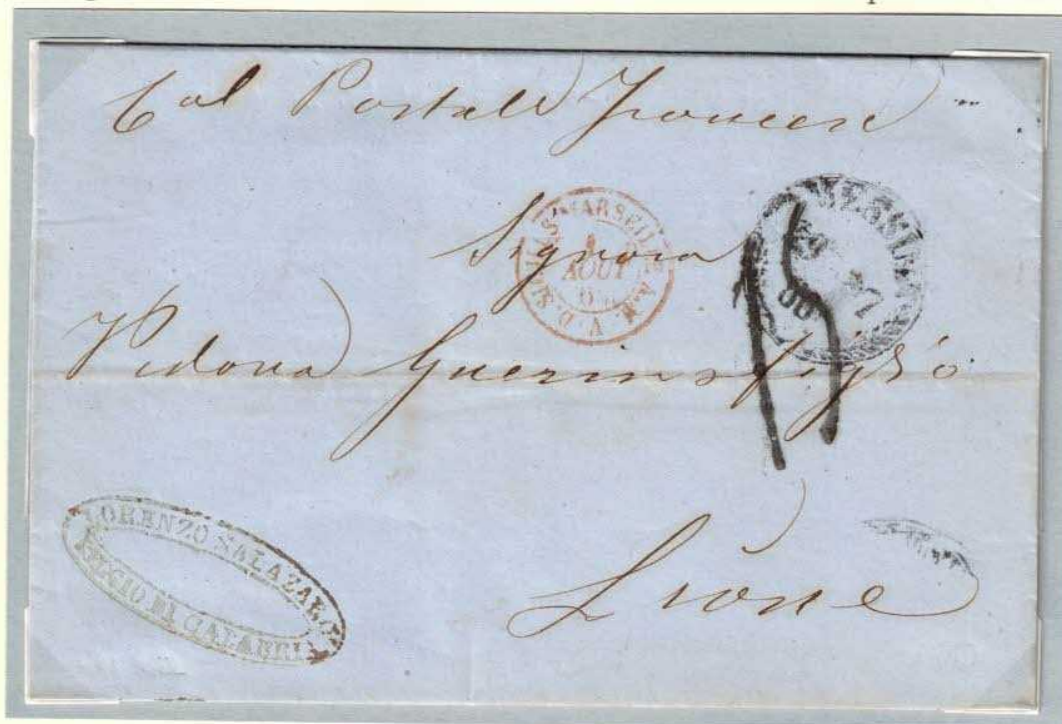 Col Postale Francese
Signora
Vedova Guerin & figlio
Lione
MARSEILLE
AOUT
MESSINA
15
LORENZO SALAZARO
REGGIO DI CALABRIA